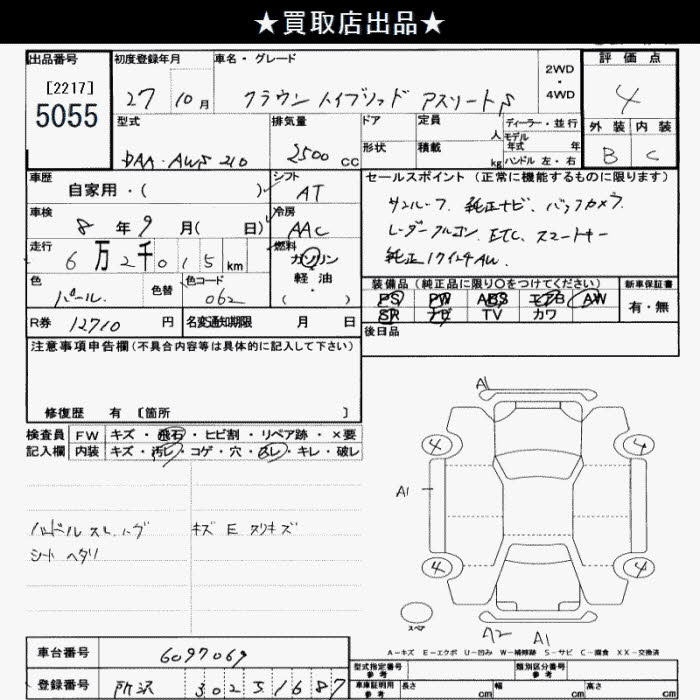 ★買取店出品★
出品番号
[2217]
5055
初度登録年月
27 10 月
車名・グレード
クラウン ハイブリッド アスリートS
2WD
・
4WD
評価点
4
外装 内装
B C
型式
DAA-AWS210
排気量
2500 cc
ドア
定員 人
形状
積載 kg
ディーラー・並行
モデル
年式 年
ハンドル 左・右
車歴
自家用・( )
シフト
AT
車検
8 年 9 月( 日)
冷房
AAC
走行
6 万 2 千 0 1 5 km
燃料
ガソリン
・
軽油
( ・ )
色
パール
色替
色コード
062
R券 12710 円
名変通知期限 月 日
セールスポイント (正常に機能するものに限ります)
サンルーフ、純正ナビ、バックカメラ
レーダークルコン、ETC、スマートキー
純正17インチAW
装備品 (純正品に限り〇をつけてください)
PS PW ABS エアB AW
SR ナビ TV カワ
新車保証書
有・無
後日品
注意事項申告欄 (不具合内容等は具体的に記入して下さい)
修復歴 有 〔箇所 〕
検査員
記入欄
FW キズ・飛石・ヒビ割・リペア跡・×要
内装 キズ・汚レ・コゲ・穴・スレ・キレ・破レ
ハンドル スレ
シート ヘタリ
キズ E スリキズ
A1
4
4
A1
4
4
スペア
A2 A1
A-キズ E-エクボ U-凹み W-補修跡 S-サビ C-腐食 XX-交換済
車台番号 6097069
登録番号 所沢 302 そ 1687
型式指定番号
参考
類別区分番号
参考
車庫証明用
参考
長さ cm
幅 cm
高さ cm